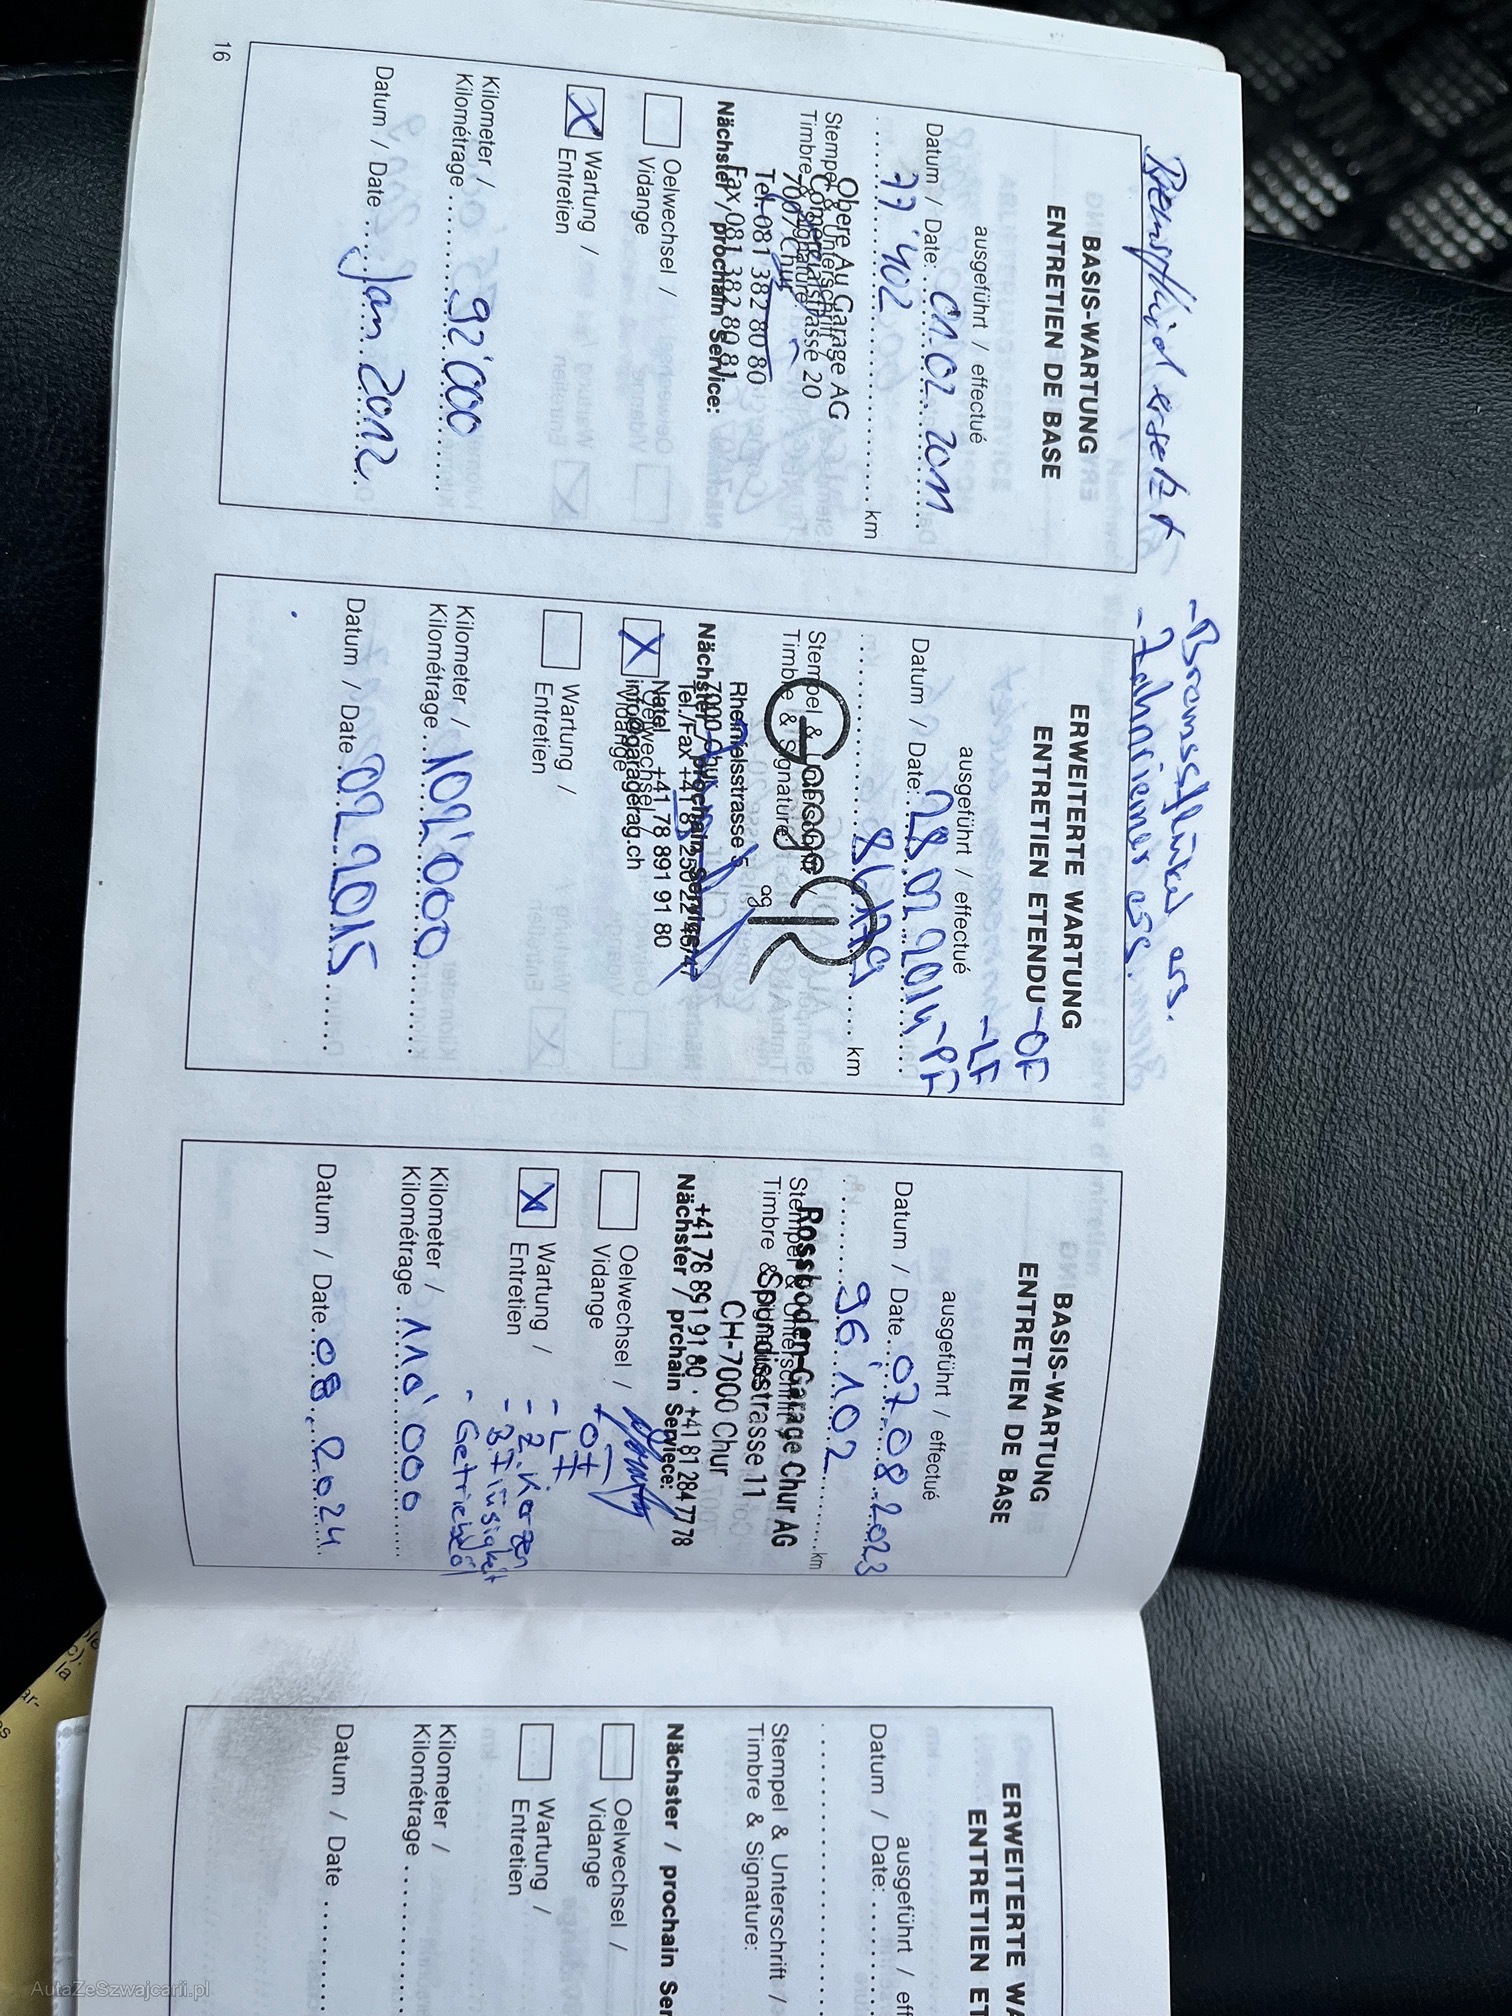 Bremsflüid ersetzt
BASIS-WARTUNG
ENTRETIEN DE BASE
ausgeführt / effectué
Datum / Date: 01.02.2011
77'402 km
Stempel & Unterschrift /
Timbre & Signature:
Obere Au Garage AG
Comercialstrasse 20
7007 Chur
Tel. 081 382 80 80
Fax 081 382 80 81
Nächster / prochain Service:
Oelwechsel /
Vidange
X Wartung /
Entretien
Kilometer /
Kilométrage 92'000
Datum / Date Jan 2012
16
- Bremsflüssi ers.
- Zahnriemen ers.
ERWEITERTE WARTUNG
ENTRETIEN ETENDU
- OF
- LF
- PF
ausgeführt / effectué
Datum / Date: 28.02.2014
86179 km
Stempel & Unterschrift /
Timbre & Signature:
Garage R ag
Rheinfelsstrasse 5
7000 Chur
Tel./Fax +41 81 250 22 46/47
Natel +41 78 891 91 80
info@garagerag.ch
Nächster / prochain Service:
X Oelwechsel /
Vidange
Wartung /
Entretien
Kilometer /
Kilométrage 102'000
Datum / Date 02.2015
BASIS-WARTUNG
ENTRETIEN DE BASE
ausgeführt / effectué
Datum / Date 07.08.2023
96'102 km
Stempel & Unterschrift
Timbre & Signature
Rossboden-Garage Chur AG
Spundisstrasse 11
CH-7000 Chur
+41 78 891 91 80 · +41 81 284 77 78
Nächster / prchain Serviece:
Oelwechsel /
Vidange
+ OF
X Wartung /
Entretien
- LF
- Z. Kerzen
- BFlüsigkeit
- Getriebeöl
Kilometer /
Kilométrage 110'000
Datum / Date 08.2024
ERWEITERTE WA
ENTRETIEN ET
ausgeführt / eff
Datum / Date:
Stempel & Unterschrift /
Timbre & Signature:
Nächster / prochain Ser
Oelwechsel /
Vidange
Wartung /
Entretien
Kilometer /
Kilométrage
Datum / Date
AutaZeSzwajcarii.pl